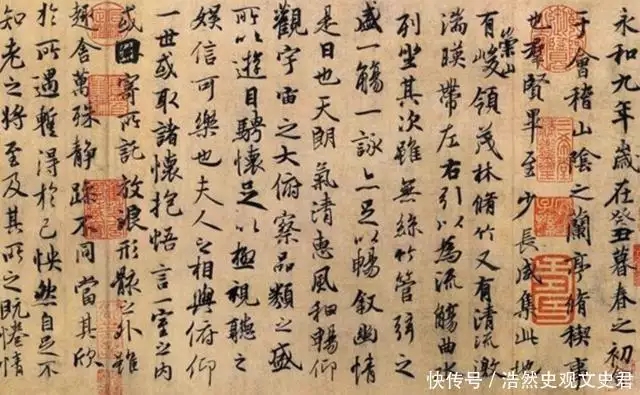 永和九年歲在癸丑暮春之初
于會稽山陰之蘭亭脩稧事
也羣賢畢至少長咸集此地
有崇山峻領茂林脩竹又有清流激
湍暎帶左右引以為流觴曲水
列坐其次雖無絲竹管弦之
盛一觴一詠亦足以暢敘幽情
是日也天朗氣清惠風和暢仰
觀宇宙之大俯察品類之盛
所以遊目騁懷足以極視聽之
娛信可樂也夫人之相與俯仰
一世或取諸懷抱悟言一室之內
或因寄所託放浪形骸之外雖
趣舍萬殊靜躁不同當其欣
於所遇蹔得於己怏然自足不
知老之將至及其所之既惓情
快传号/浩然史观文史君